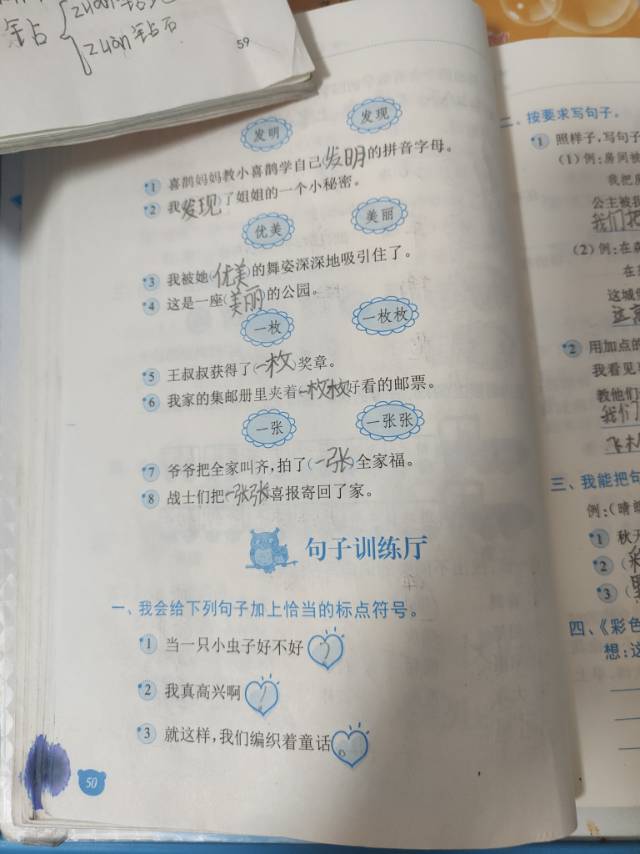 zuàn 钻
zuān 钻石
59
发明 发现
1 喜鹊妈妈教小喜鹊学自己(发明)的拼音字母。
2 我(发现)了姐姐的一个小秘密。
优美 美丽
3 我被她(优美)的舞姿深深地吸引住了。
4 这是一座(美丽)的公园。
一枚 一枚枚
5 王叔叔获得了(一枚)奖章。
6 我家的集邮册里夹着(一枚枚)好看的邮票。
一张 一张张
7 爷爷把全家叫齐,拍了(一张)全家福。
8 战士们把(一张张)喜报寄回了家。
句子训练厅
一、我会给下列句子加上恰当的标点符号。
1 当一只小虫子好不好?
2 我真高兴啊!
3 就这样,我们编织着童话。
50
二、按要求写句子。
1 照样子,写句子
(1)例:房间被
我把房
公主被我
我们把
(2)例:在森
在
这城
2 用加点的
我看见
教他们
我们
三、我能把句
例:(晴朗
1 秋天
2
3
四、《彩色
想:这